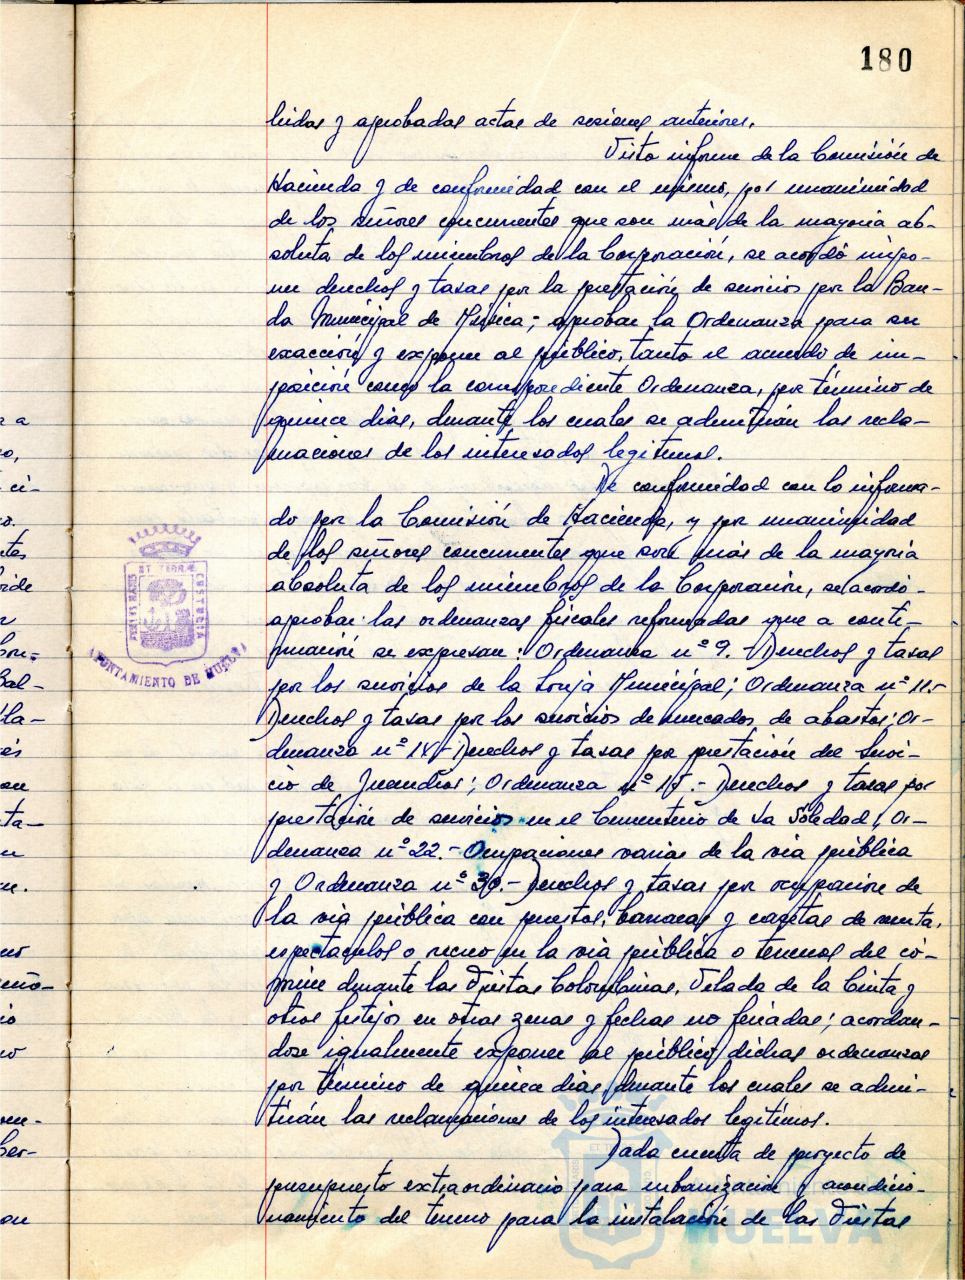 180
leidas y aprobadas actas de sesiones anteriores.
Visto informe de la Comisión de
Hacienda y de conformidad con el mismo, por unanimidad
de los señores concurrentes que son más de la mayoria ab-
soluta de los miembros de la Corporación, se acordó impo-
ner derechos y tasas por la prestación de servicios por la Ban-
da Municipal de Música; aprobar la Ordenanza para su
exacción y exponer al público, tanto el acuerdo de im-
posición como la correspondiente Ordenanza, por término de
quince dias, durante los cuales se admitirán las recla-
maciones de los interesados legitimos.
De conformidad con lo informa-
do por la Comisión de Hacienda, y por unanimidad
de los señores concurrentes que son más de la mayoria
absoluta de los miembros de la Corporación, se acordó
aprobar las ordenanzas fiscales reformadas que a conti-
nuación se expresan: Ordenanza nº 9.- Derechos y tasas
por los servicios de la Lonja Municipal; Ordenanza nº 11.-
Derechos y tasas por los servicios de mercados de abastos; Or-
denanza nº Derechos y tasas por prestación del Servi-
cio de Incendios; Ordenanza nº 15.- Derechos y tasas por
prestación de servicios en el Cementerio de La Soledad; Or-
denanza nº 22.- Ocupaciones varias de la via pública
y Ordenanza nº 30.- Derechos y tasas por ocupación de
la via pública con puestos, barracas y casetas de venta,
espectaculos o recreo en la via pública o terrenos del co-
mún durante las Fiestas Colombinas, Velada de la Cinta y
otros festejos en otras zonas y fechas no feriadas; acordan-
dose igualmente exponer al público dichas ordenanzas
por término de quince dias, durante los cuales se admi-
tirán las reclamaciones de los interesados legítimos.
Dada cuenta de proyecto de
presupuesto extraordinario para urbanización y acondicio-
namiento del terreno para la instalación de las Fiestas
AYUNTAMIENTO DE HUELVA
HUELVA